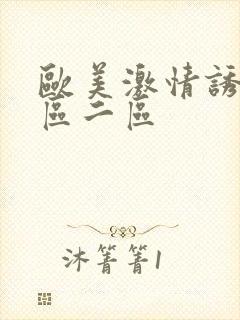 歐美激情誘
區二區
沐箐箐1